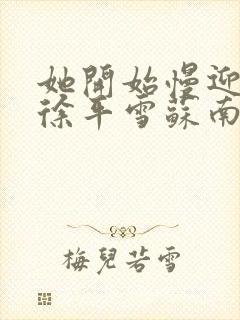 她開始慢迎
徐平雪蘇南
梅兒若雪